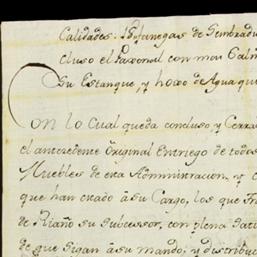 Calidades: 18 fanegas de Sembradu
cluso el Parronil con mas Balm
Su Estanque, y hoxo de Agua que
Con lo Cual queda concluso, y Cerra
el antecedente Original Entriego de todos
Muebles de esta Administracion, y
que han estado à su Cargo, los que Fr
de Riaño su Subcessor, con plena Satis
de que sigan à su mando; y distribuc